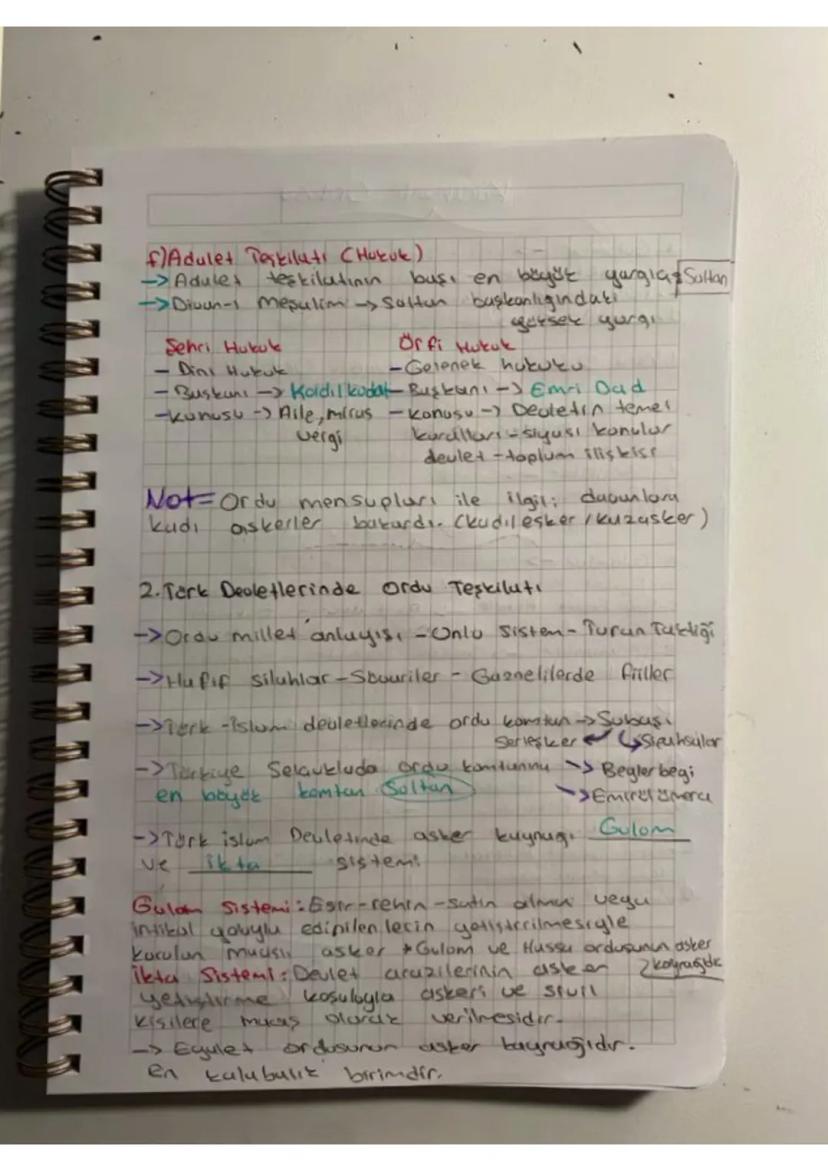 f) Adalet Teşkilatı (Hukuk)
-> Adalet teşkilatının başı en büyük yargıç; Sultan
-> Divan-ı Mezalim -> Sultan başkanlığındaki
yüksek yargı
Şehri Hukuk
- Dini Hukuk
- Başkanı -> Kadılkudat
- konusu -> Aile, miras
vergi
Örfi Hukuk
- Gelenek hukuku
- Başkanı -> Emri Dad
- konusu -> Devletin temel
kuralları - siyasi konular
devlet - toplum ilişkisi
Not= Ordu mensupları ile ilgili davalara
kadı askerler bakardı. (kadıleşker / kazasker)
2. Türk Devletlerinde Ordu Teşkilatı
-> Ordu millet anlayışı - Onlu Sistem - Turan Taktiği
-> Hafif silahlar - Süvariler - Gaznelilerde filler
-> Türk - İslam devletlerinde ordu komutan -> Subaşı
Serleşker Sipahsalar
-> Türkiye Selçukluda ordu komutanını -> Beglerbegi
en büyük komutan Sultan -> Emirül ümera
-> Türk islam Devletinde asker kaynağı Gulam
ve ikta sistemi
Gulam Sistemi: Esir - rehin - satın alma veya
intikal yoluyla edinilenlerin yetiştirilmesiyle
kurulan maaşlı asker * Gulam ve Hassa ordusunun asker
kaynağıdır
İkta Sistemi: Devlet arazilerinin asker
yetiştirme koşuluyla askeri ve sivil
kişilere maaş olarak verilmesidir.
-> Eyalet ordusunun asker kaynağıdır.
en kalabalık birimdir.